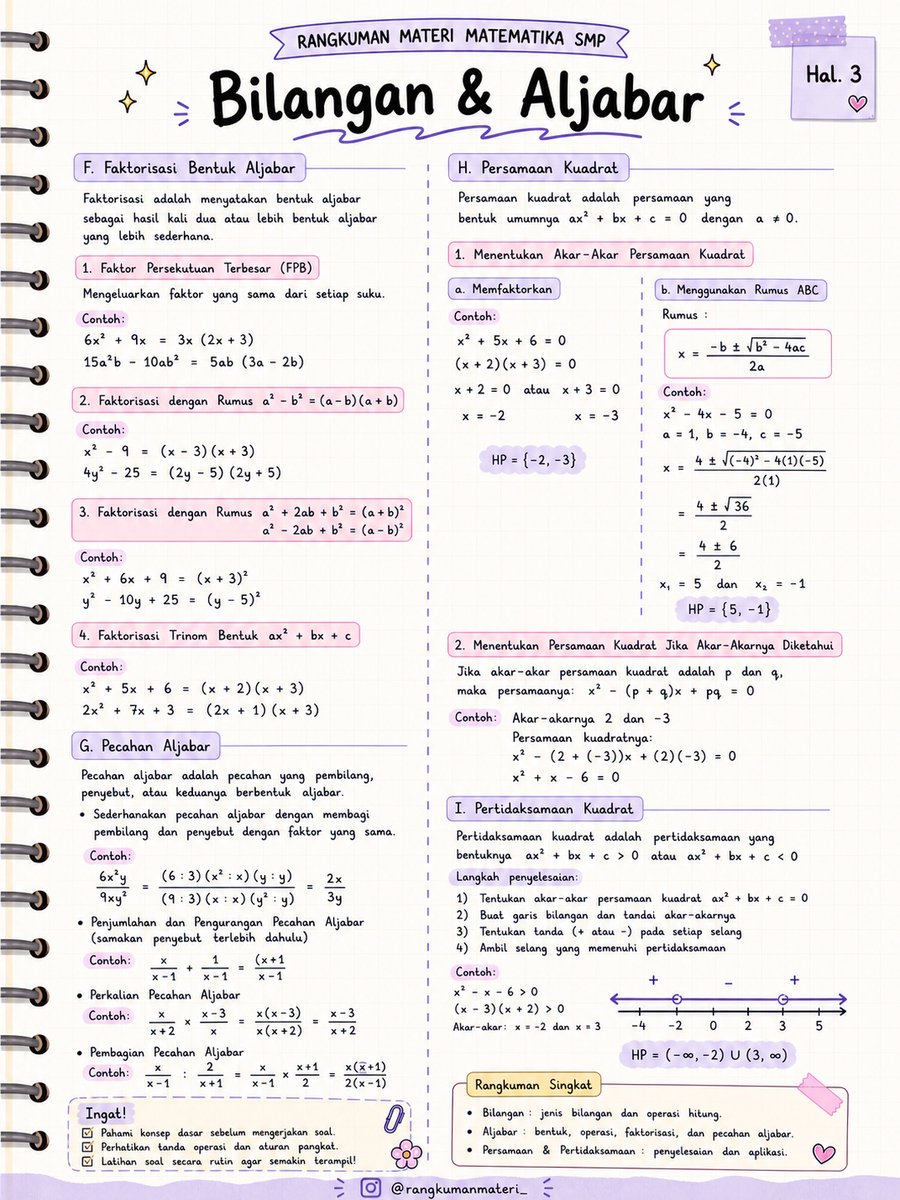 RANGKUMAN MATERI MATEMATIKA SMP
Bilangan & Aljabar
Hal. 3
F. Faktorisasi Bentuk Aljabar
Faktorisasi adalah menyatakan bentuk aljabar
sebagai hasil kali dua atau lebih bentuk aljabar
yang lebih sederhana.
1. Faktor Persekutuan Terbesar (FPB)
Mengeluarkan faktor yang sama dari setiap suku.
Contoh:
6x² + 9x = 3x (2x + 3)
15a²b - 10ab² = 5ab (3a - 2b)
2. Faktorisasi dengan Rumus a² - b² = (a-b)(a+b)
Contoh:
x² - 9 = (x - 3)(x + 3)
4y² - 25 = (2y - 5)(2y + 5)
3. Faktorisasi dengan Rumus a² + 2ab + b² = (a+b)²
a² - 2ab + b² = (a-b)²
Contoh:
x² + 6x + 9 = (x + 3)²
y² - 10y + 25 = (y - 5)²
4. Faktorisasi Trinom Bentuk ax² + bx + c
Contoh:
x² + 5x + 6 = (x + 2)(x + 3)
2x² + 7x + 3 = (2x + 1)(x + 3)
G. Pecahan Aljabar
Pecahan aljabar adalah pecahan yang pembilang,
penyebut, atau keduanya berbentuk aljabar.
• Sederhanakan pecahan aljabar dengan membagi
pembilang dan penyebut dengan faktor yang sama.
Contoh:
6x²y / 9xy² = (6 : 3)(x² : x)(y : y) / (9 : 3)(x : x)(y² : y) = 2x / 3y
• Penjumlahan dan Pengurangan Pecahan Aljabar
(samakan penyebut terlebih dahulu)
Contoh: x / x-1 + 1 / x-1 = (x+1 / x-1
• Perkalian Pecahan Aljabar
Contoh: x / x+2 × x-3 / x = x(x-3) / x(x+2) = x-3 / x+2
• Pembagian Pecahan Aljabar
Contoh: x / x-1 : 2 / x+1 = x / x-1 × x+1 / 2 = x(x+1) / 2(x-1)
Ingat!
Pahami konsep dasar sebelum mengerjakan soal.
Perhatikan tanda operasi dan aturan pangkat.
Latihan soal secara rutin agar semakin terampil!
H. Persamaan Kuadrat
Persamaan kuadrat adalah persamaan yang
bentuk umumnya ax² + bx + c = 0 dengan a ≠ 0.
1. Menentukan Akar-Akar Persamaan Kuadrat
a. Memfaktorkan
Contoh:
x² + 5x + 6 = 0
(x + 2)(x + 3) = 0
x + 2 = 0 atau x + 3 = 0
x = -2 x = -3
HP = {-2, -3}
b. Menggunakan Rumus ABC
Rumus :
x = -b ± √b² - 4ac / 2a
Contoh:
x² - 4x - 5 = 0
a = 1, b = -4, c = -5
x = 4 ± √(-4)² - 4(1)(-5) / 2(1)
= 4 ± √36 / 2
= 4 ± 6 / 2
x₁ = 5 dan x₂ = -1
HP = {5, -1}
2. Menentukan Persamaan Kuadrat Jika Akar-Akarnya Diketahui
Jika akar-akar persamaan kuadrat adalah p dan q,
maka persamaanya: x² - (p + q)x + pq = 0
Contoh: Akar-akarnya 2 dan -3
Persamaan kuadratnya:
x² - (2 + (-3))x + (2)(-3) = 0
x² + x - 6 = 0
I. Pertidaksamaan Kuadrat
Pertidaksamaan kuadrat adalah pertidaksamaan yang
bentuknya ax² + bx + c > 0 atau ax² + bx + c < 0
Langkah penyelesaian:
1) Tentukan akar-akar persamaan kuadrat ax² + bx + c = 0
2) Buat garis bilangan dan tandai akar-akarnya
3) Tentukan tanda (+ atau -) pada setiap selang
4) Ambil selang yang memenuhi pertidaksamaan
Contoh:
x² - x - 6 > 0
(x - 3)(x + 2) > 0
Akar-akar: x = -2 dan x = 3
+ - +
-4 -2 0 2 3 5
HP = (-∞, -2) ∪ (3, ∞)
Rangkuman Singkat
• Bilangan : jenis bilangan dan operasi hitung.
• Aljabar : bentuk, operasi, faktorisasi, dan pecahan aljabar.
• Persamaan & Pertidaksamaan : penyelesaian dan aplikasi.
@rangkumanmateri_